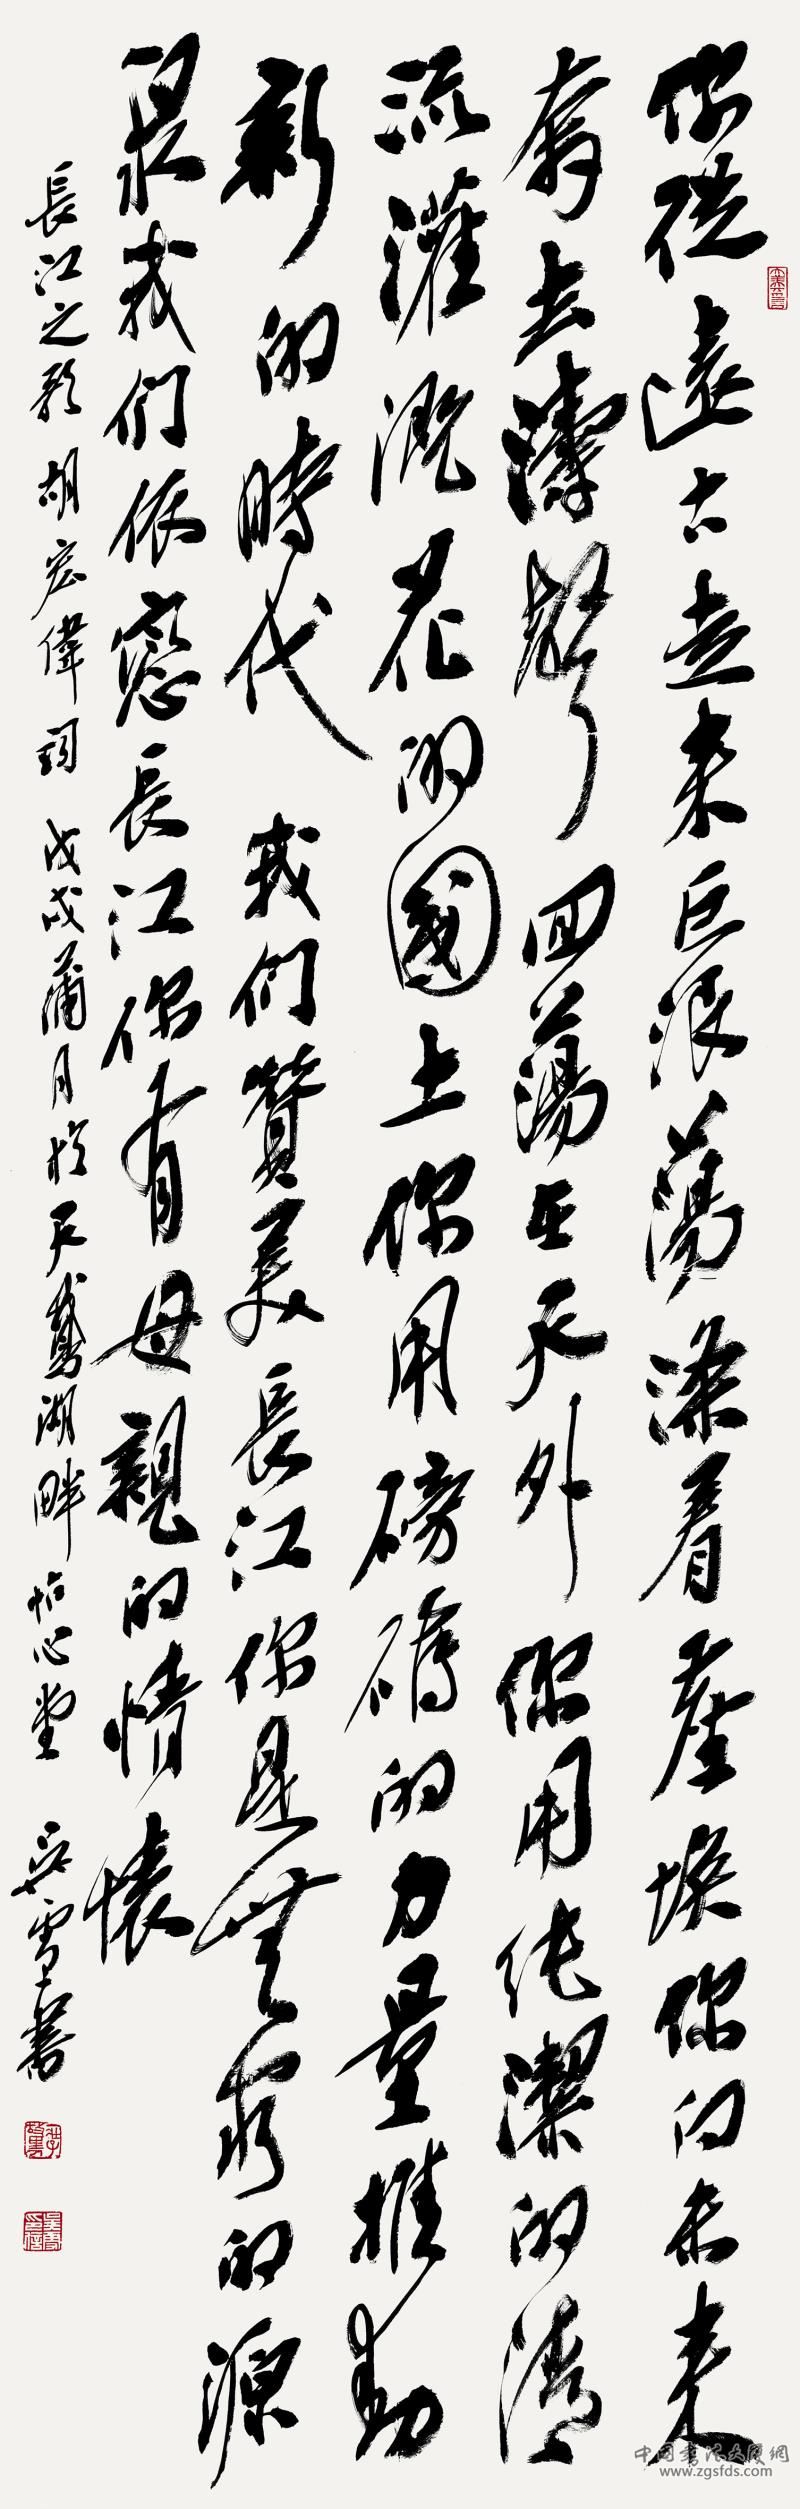 你從遠古走来巨浪蕩滌着塵埃你向未来
奔去濤聲回蕩在天外你用純潔的清
流灌溉花的國土你用磅礴的力量推動
新的時代我们贊美長江你是無窮的源
泉我们依戀長江你有母親的情懷
長江之歌胡宏偉詞戊戌蒲月於天鵝湖畔怡心堂吴雪書
中国書法大厦網
www.zgsfds.com